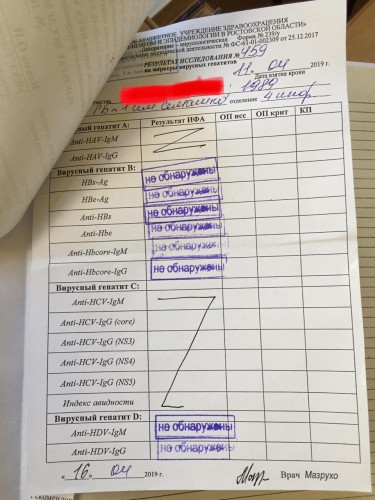 БЮДЖЕТНОЕ УЧРЕЖДЕНИЕ ЗДРАВООХРАНЕНИЯ
ГИГИЕНЫ И ЭПИДЕМИОЛОГИИ В РОСТОВСКОЙ ОБЛАСТИ»
Лаборатория – вирусологическая Форма № 239/у
медицинской деятельности № ФС-61-01-002509 от 25.12.2017
РЕЗУЛЬТАТ ИССЛЕДОВАНИЯ № 459
на маркеры вирусных гепатитов
11. 04 2019 г.
Дата взятия крови
1989
отделение 4 инф
Вирусный гепатит А: Результат ИФА ОП исс ОП крит КП
Anti-HAV-IgM
Anti-HAV-IgG
Вирусный гепатит В:
HBs-Ag не обнаружены
HBe-Ag не обнаружены
Anti-HBs не обнаружены
Anti-Hbe не обнаружены
Anti-Hbcore-IgM не обнаружены
Anti-Hbcore-IgG не обнаружены
Вирусный гепатит С:
Anti-HCV-IgM
Anti-HCV-IgG (core)
Anti-HCV-IgG (NS3)
Anti-HCV-IgG (NS4)
Anti-HCV-IgG (NS5)
Индекс авидности
Вирусный гепатит D:
Anti-HDV-IgM не обнаружены
Anti-HDV-IgG не обнаружены
« 16 » 04 2019 г. Врач Мазрухо